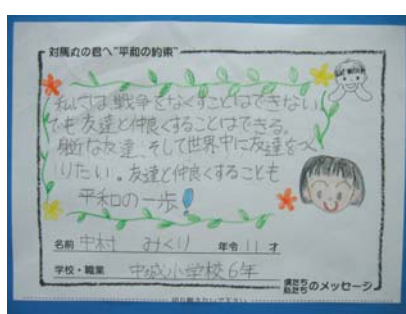 対馬丸の君へ"平和の約束"
私には戦争をなくすことはできない
でも友達と仲良くすることはできる。
身近な友達、そして世界中に友達をつ
くりたい。友達と仲良くすることも
平和の一歩!
名前 中村 みくり 年令 11 才
学校・職業 中城小学校6年
僕たち
私たち のメッセージ